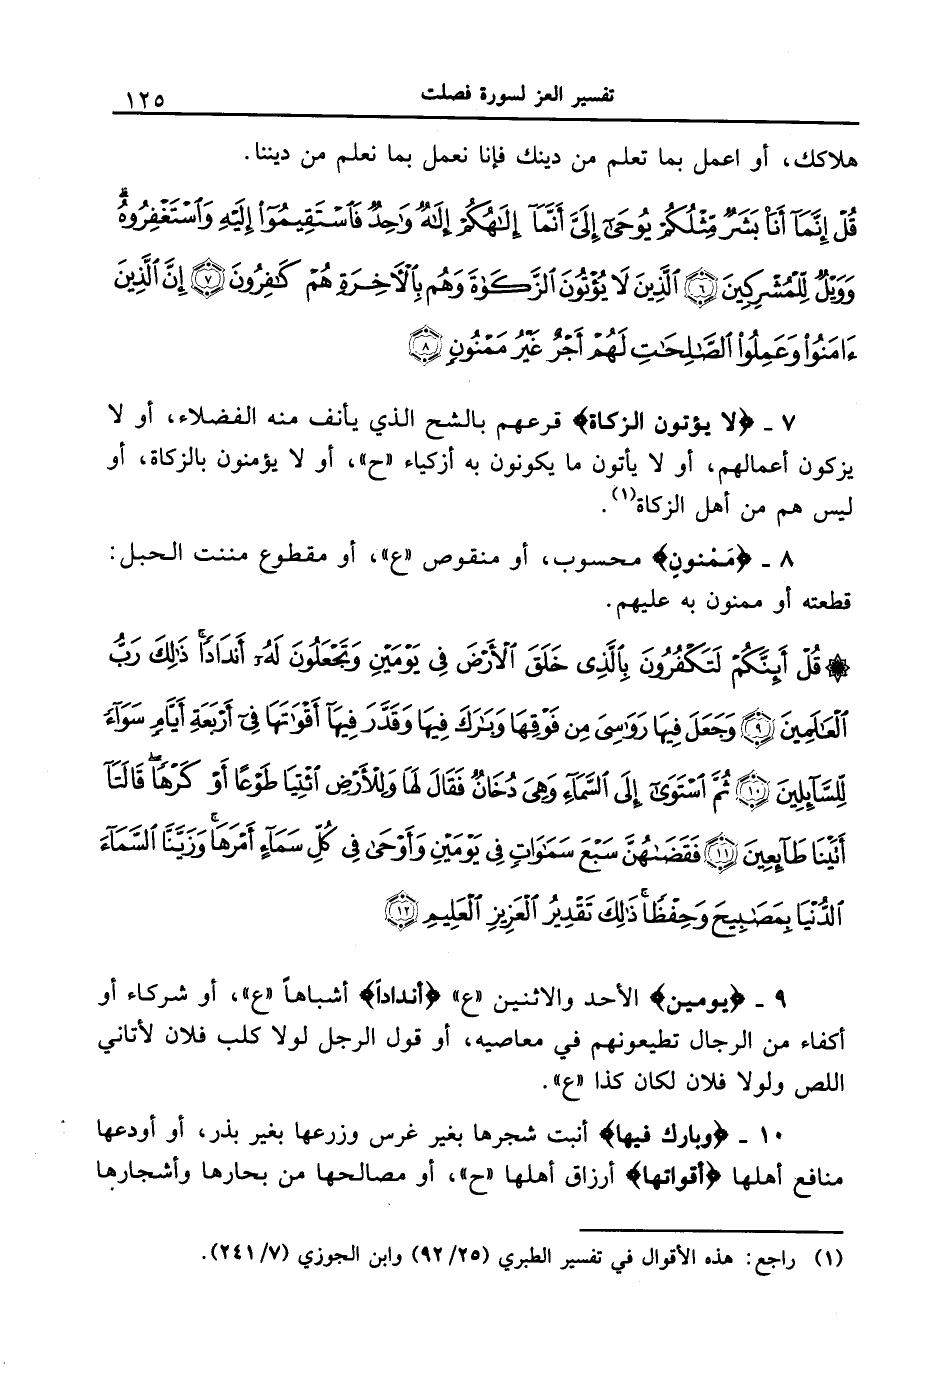 تفسير العز لسورة فصلت ١٢٥
هلاكك، أو اعمل بما تعلم من دينك فإنا نعمل بما نعلم من ديننا.
قُلْ إِنَّمَآ أَنَا۠ بَشَرٌ مِّثْلُكُمْ يُوحَىٰٓ إِلَىَّ أَنَّمَآ إِلَٰهُكُمْ إِلَٰهٌ وَٰحِدٌ فَٱسْتَقِيمُوٓا۟ إِلَيْهِ وَٱسْتَغْفِرُوهُ ۗ
وَوَيْلٌ لِّلْمُشْرِكِينَ ٦ ٱلَّذِينَ لَا يُؤْتُونَ ٱلزَّكَوٰةَ وَهُم بِٱلْأَخِرَةِ هُمْ كَٰفِرُونَ ٧ إِنَّ ٱلَّذِينَ
ءَامَنُوا۟ وَعَمِلُوا۟ ٱلصَّٰلِحَٰتِ لَهُمْ أَجْرٌ غَيْرُ مَمْنُونٍ ٨
٧ ـ ﴿لا يؤتون الزكاة﴾ قرعهم بالشح الذي يأنف منه الفضلاء، أو لا
يزكون أعمالهم، أو لا يأتون ما يكونون به أزكياء «ح»، أو لا يؤمنون بالزكاة، أو
ليس هم من أهل الزكاة(١).
٨ ـ ﴿مَمْنونٍ﴾ محسوب، أو منقوص «ع»، أو مقطوع مننت الحبل:
قطعته أو ممنون به عليهم.
۞ قُلْ أَئِنَّكُمْ لَتَكْفُرُونَ بِٱلَّذِى خَلَقَ ٱلْأَرْضَ فِى يَوْمَيْنِ وَتَجْعَلُونَ لَهُۥٓ أَندَادًا ۚ ذَٰلِكَ رَبُّ
ٱلْعَٰلَمِينَ ٩ وَجَعَلَ فِيهَا رَوَٰسِىَ مِن فَوْقِهَا وَبَٰرَكَ فِيهَا وَقَدَّرَ فِيهَآ أَقْوَٰتَهَا فِىٓ أَرْبَعَةِ أَيَّامٍ سَوَآءً
لِّلسَّآئِلِينَ ١٠ ثُمَّ ٱسْتَوَىٰٓ إِلَى ٱلسَّمَآءِ وَهِىَ دُخَانٌ فَقَالَ لَهَا وَلِلْأَرْضِ ٱئْتِيَا طَوْعًا أَوْ كَرْهًا ۖ قَالَتَآ
أَتَيْنَا طَآئِعِينَ ١١ فَقَضَىٰهُنَّ سَبْعَ سَمَٰوَاتٍ فِى يَوْمَيْنِ وَأَوْحَىٰ فِى كُلِّ سَمَآءٍ أَمْرَهَا ۚ وَزَيَّنَّا ٱلسَّمَآءَ
ٱلدُّنْيَا بِمَصَٰبِيحَ وَحِفْظًا ۚ ذَٰلِكَ تَقْدِيرُ ٱلْعَزِيزِ ٱلْعَلِيمِ ١٢
٩ ـ ﴿يومين﴾ الأحد والاثنين «ع» ﴿أنداداً﴾ أشباهاً «ع»، أو شركاء أو
أكفاء من الرجال تطيعونهم في معاصيه، أو قول الرجل لولا كلب فلان لأتاني
اللص ولولا فلان لكان كذا «ع».
١٠ ـ ﴿وبارك فيها﴾ أنبت شجرها بغير غرس وزرعها بغير بذر، أو أودعها
منافع أهلها ﴿أقواتها﴾ أرزاق أهلها «ح»، أو مصالحها من بحارها وأشجارها
(١) راجع: هذه الأقوال في تفسير الطبري (٩٢/٢٥) وابن الجوزي (٢٤١/٧).